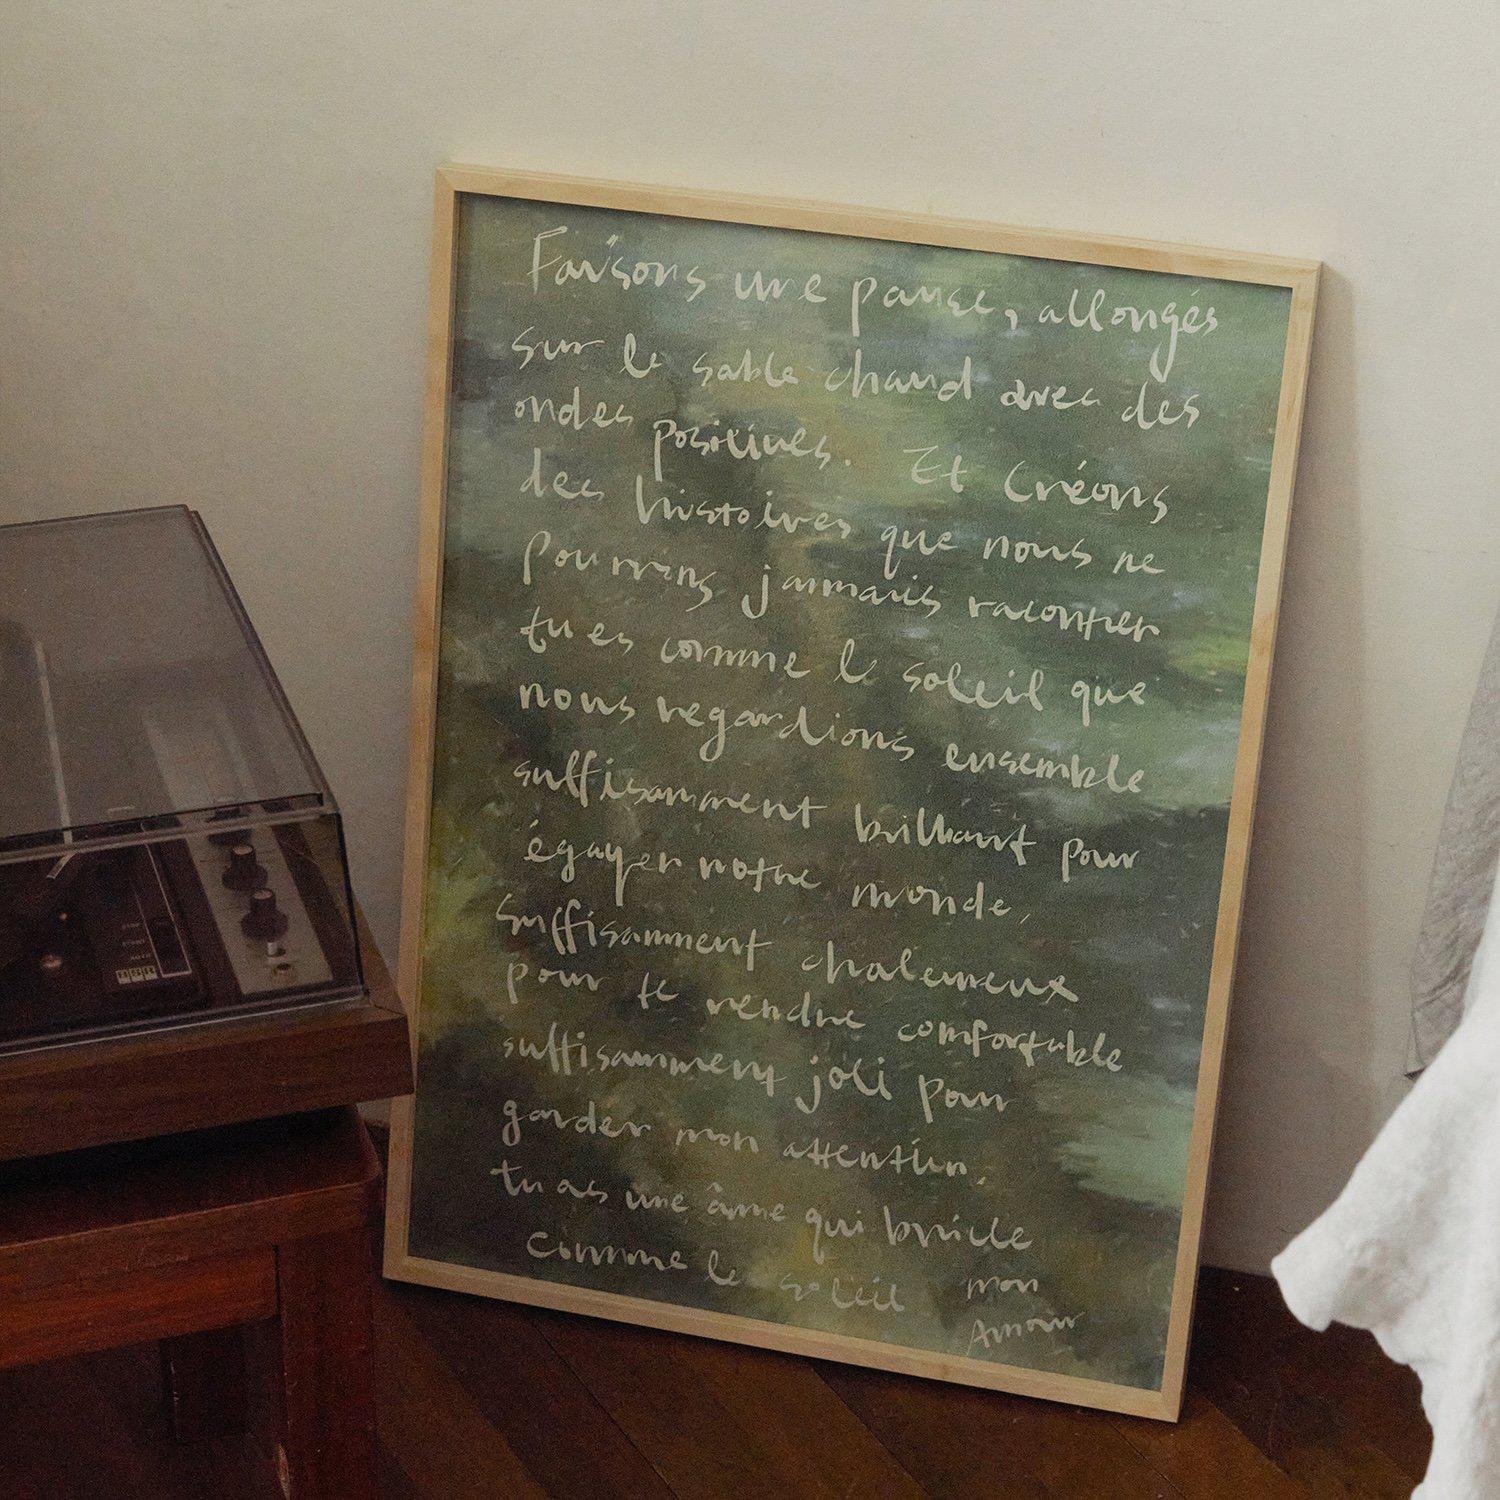 Faisons une pause, allongés
sur le sable chaud avec des
ondes positives. Et Créons
des histoires que nous ne
pourrons jammais raconter
tu es comme le soleil que
nous regardions ensemble
suffisamment brillant pour
égayer notre monde,
suffisamment chaleureux
pour te rendre comfortable
suffisamment joli pour
garder mon attention.
tu as une âme qui brille
comme le soleil mon
Amour